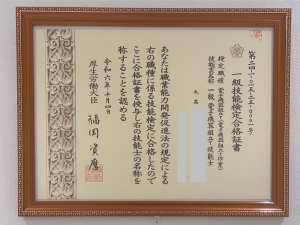 第二四-一-〇一五-二五-〇〇〇一号
一級技能検定合格証書
検定職種 電子機器組立て(電子機器組立て作業)
技能士名称 一級 電子機器組立て技能士
氏名
あなたは職業能力開発促進法の規定による
右の職種に係る技能検定に合格したので
ここに合格証書を授与し右の技能士の名称を
称することを認める
令和六年十月四日
厚生労働大臣 福岡資麿